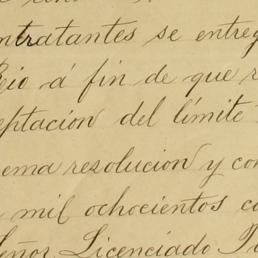 ntratantes se entreg
cio á fin de que r
eptacion del límite
ema resolucion y con
mil ochocientos c
Señor Licenciado